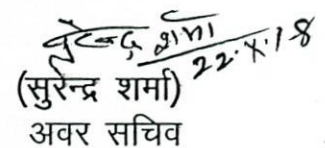 सुरेन्द्र शर्मा
22.X.18
(सुरेन्द्र शर्मा)
अवर सचिव